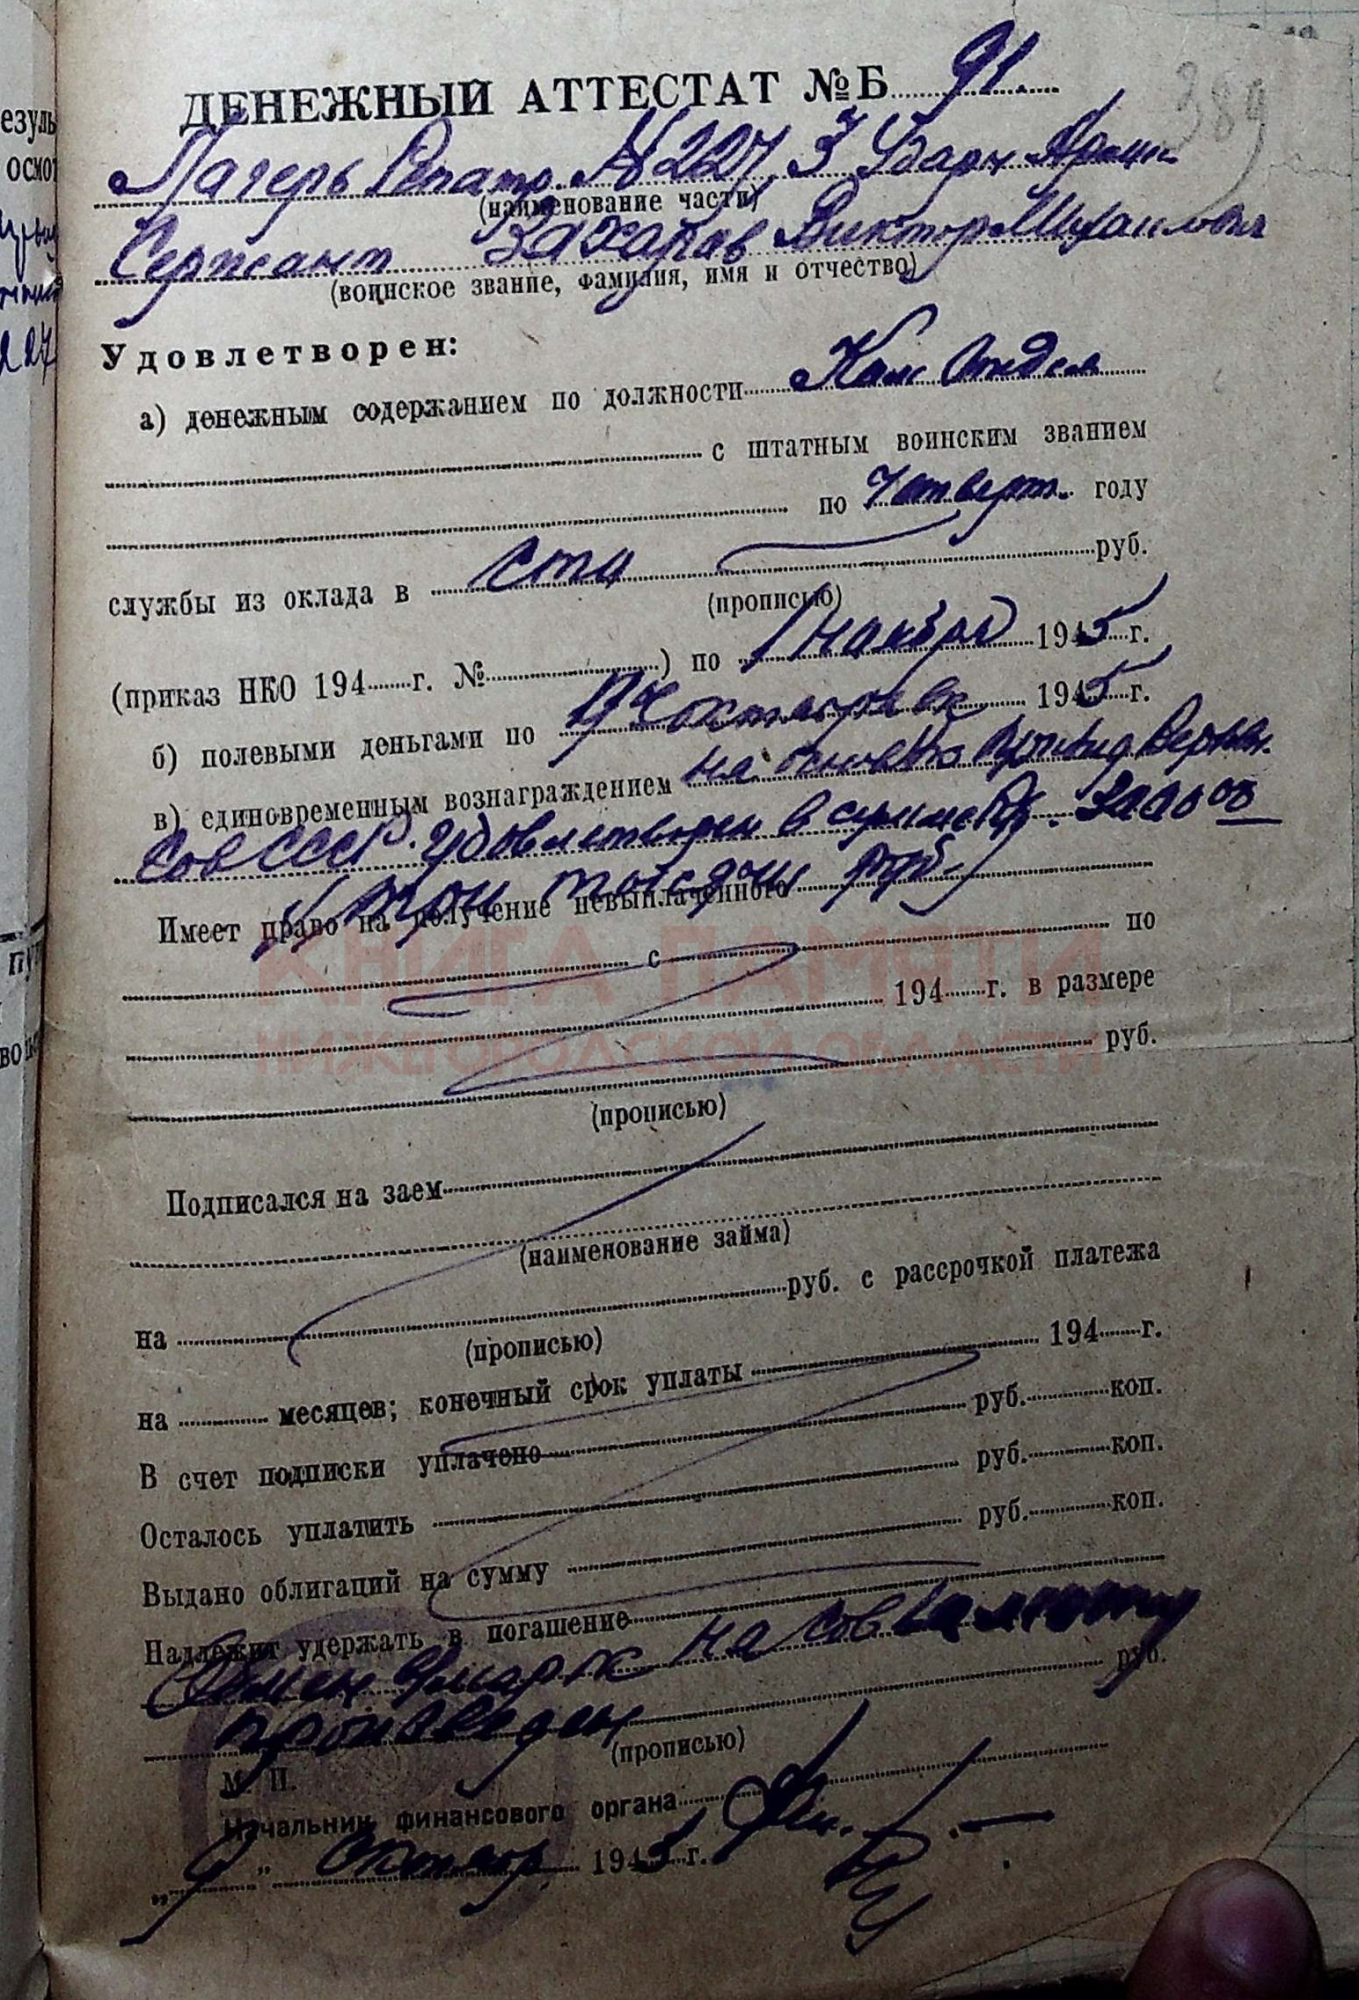 389
ДЕНЕЖНЫЙ АТТЕСТАТ №Б 91.
Лагерь Репатр. № 227, 3й Ударн Армии
(наименование части)
Сержант Захаров Виктор Михайлович
(воинское звание, фамилия, имя и отчество)
Удовлетворен:
а) денежным содержанием по должности Ком Отдел
с штатным воинским званием
по четверт. году
службы из оклада в сто руб.
(прописью)
(приказ НКО 194 г. № ) по 1 ноября 1945 г.
б) полевыми деньгами по октября 1945 г.
в) единовременным вознаграждением на Верхов.
Сов СССР. удовлетворен в сумме 3000 00
(три тысячи руб)
Имеет право на получение невыплаченного
с по
194 г. в размере
руб.
(прописью)
КНИГА ПАМЯТИ
НИЖЕГОРОДСКОЙ ОБЛАСТИ
Подписался на заем
(наименование займа)
на руб. с рассрочкой платежа
(прописью)
на месяцев; конечный срок уплаты 194 г.
В счет подписки уплачено руб. коп.
Осталось уплатить руб. коп.
Выдано облигаций на сумму руб. коп.
Надлежит удержать в погашение
Обмен марок на сов валюту
произведен руб.
(прописью)
М. П.
Начальник финансового органа
„9" октябр. 1945 г.